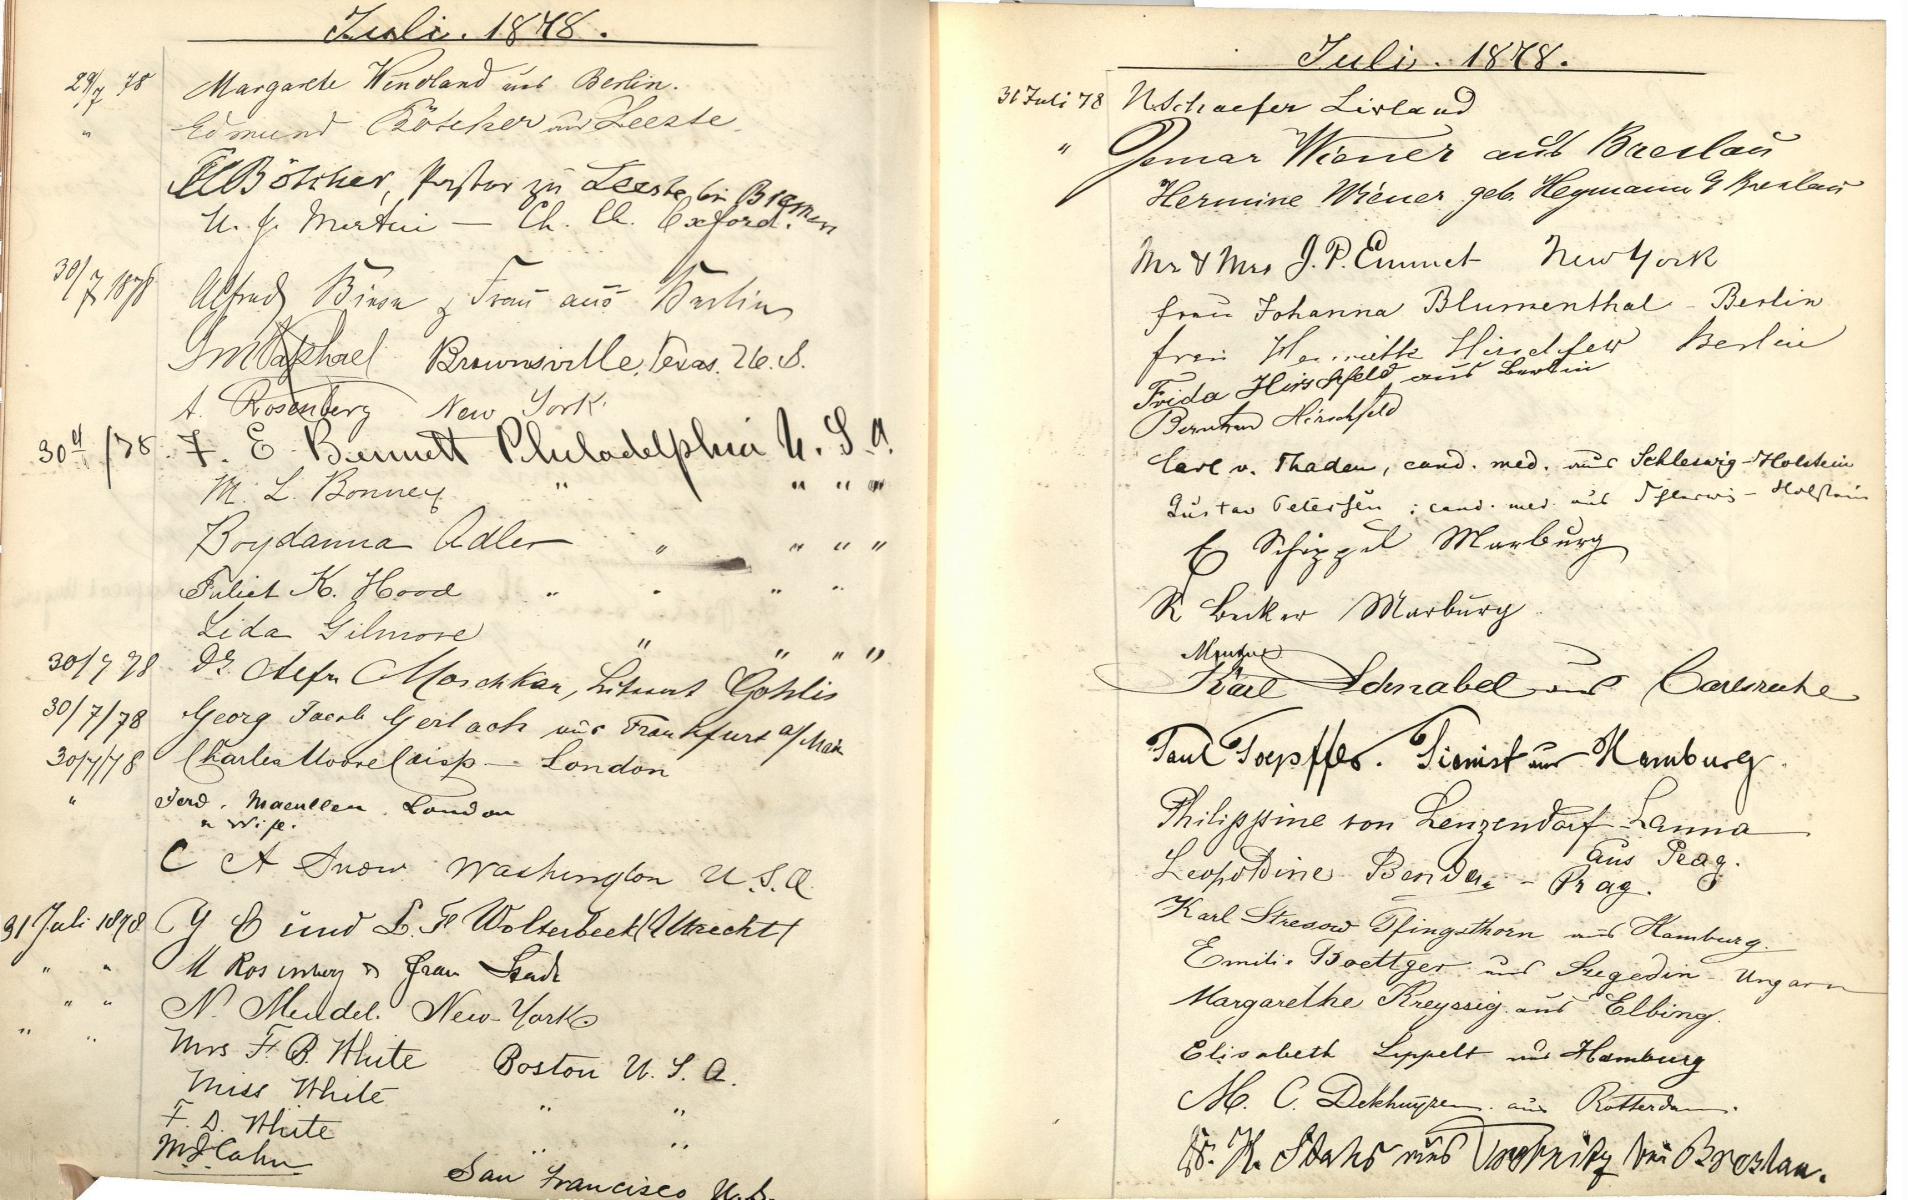 Juli. 1878.
29/7 78 Margarete Wendland aus Berlin.
" Edmund Bötcher aus Leeste.
Bötcher, Pastor zu Leeste bei Bremen
U. J. Martin — Ch. Ch. Oxford.
30/7 1878 Alfred Biese & Frau aus Berlin
Raphael Brownsville, Texas. U. S.
A. Rosenberg New York.
30 /78. F. E. Bennett Philadelphia U. S. A.
M. L. Bonney " " " "
Boydanna Adler " " " "
Juliet K. Hood " " " "
Lida Gilmore " " " "
30/7 78 Dr. Moschkau, Gohlis
30/7/78 Georg Jacob Gerlach aus Frankfurt a/Main
30/7/78 Charles Moore Crisp — London
" Ferd. Macullen. London
& Wife.
C A Snow Washington U. S. A.
31 Juli 1878. Y E und L. F. Wolterbeek (Utrecht)
" " M Rosenberg & Frau Stade
" " N. Mendel. New-York
" " Mrs F. B. White Boston U. S. A.
Miss White " "
F. D. White " "
M. J. Cahn San Francisco U. S.
Juli. 1878.
31 Juli 78 N. Schaefer Livland
" Wiener aus Breslau
Hermine Wiener geb. Heymann Breslau
Mr & Mrs J. P. Emmet New York
frau Johanna Blumenthal - Berlin
frau Henriette Hirschfeld Berlin
Frida Hirschfeld aus Berlin
Bernhard Hirschfeld
Carl v. Thaden, cand. med. aus Schleswig-Holstein
Gustav Petersen, cand. med. aus Schleswig-Holstein
E Schippel Marburg
R Becker Marburg
Karl Schnabel aus Carlsruhe
Paul Toepffer. Pianist aus Hamburg.
Philippine von Lenzendorf-Lanna
aus Prag.
Leopoldine Benda. - Prag.
Karl Stresow Pfingsthorn aus Hamburg.
Emilie Boettger aus Szegedin - Ungarn
Margarethe Kreyssig aus Elbing.
Elisabeth Lippelt aus Hamburg
M. C. Dekhuyzen. aus Rotterdam.
K. Stahs aus bei Breslau.